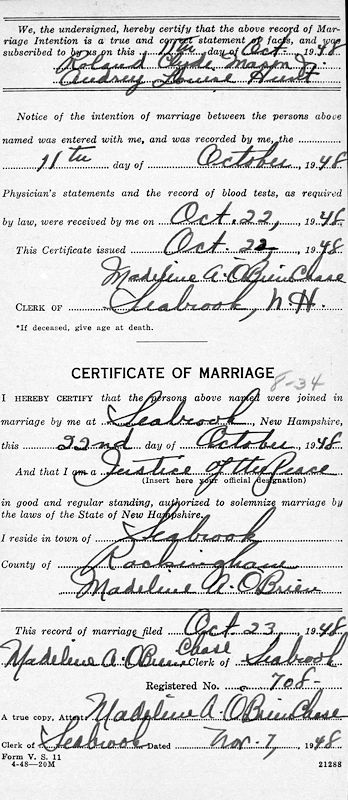 We, the undersigned, hereby certify that the above record of Mar-
riage Intention is a true and correct statement of facts, and was
subscribed to by us on this 11th day of Oct. 1948
Roland Clyde Mason Jr.
Audrey Louise Hunt
Notice of the intention of marriage between the persons above
named was entered with me, and was recorded by me, the
11th day of October, 1948
Physician's statements and the record of blood tests, as required
by law, were received by me on Oct. 22, 1948
This Certificate issued Oct. 22, 1948
Madeline A. O'Brien Chase
CLERK OF Seabrook, N.H.
*If deceased, give age at death.
CERTIFICATE OF MARRIAGE
8-34
I HEREBY CERTIFY that the persons above named were joined in
marriage by me at Seabrook, New Hampshire,
this 22nd day of October, 1948
And that I am a Justice of the Peace
(Insert here your official designation)
in good and regular standing, authorized to solemnize marriage by
the laws of the State of New Hampshire.
I reside in town of Seabrook
County of Rockingham
Madeline A. O'Brien
This record of marriage filed Oct. 23, 1948
Madeline A. O'Brien Chase Clerk of Seabrook
Registered No. 708-
A true copy, Attest: Madeline A. O'Brien Chase
Clerk of Seabrook Dated Nov. 7, 1948
Form V. S. 11
4-48—20M 21288